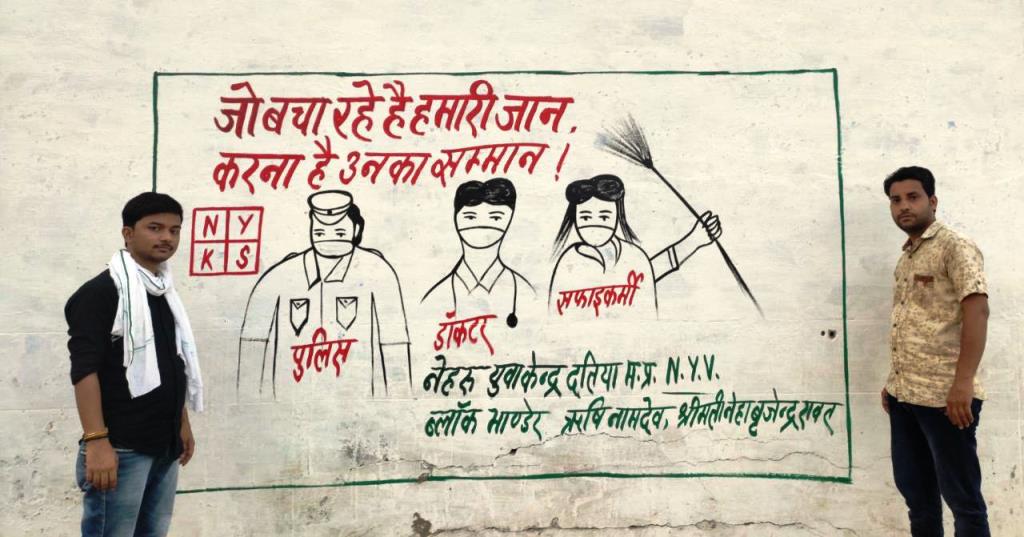 जो बचा रहे है हमारी जान,
करना है उनका सम्मान!
N Y
K S
पुलिस
डॉकटर
सफाइकर्मी
नेहरू युवा केन्द्र दतिया म.प्र. N.Y.V.
ब्लॉक भाण्डेर ऋषि नामदेव, श्रीमती नेहा बृजेन्द्र रावत